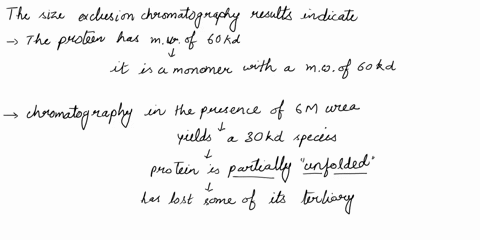 The size exclusion chromatography results indicate
→ The protein has m.w. of 60kd
↓
it is a monomer with a m.w. of 60kd
→ chromatography in the presence of 6M urea
↓
yields a 30kd species
↓
protein is partially "unfolded"
↓
has lost some of its tertiary